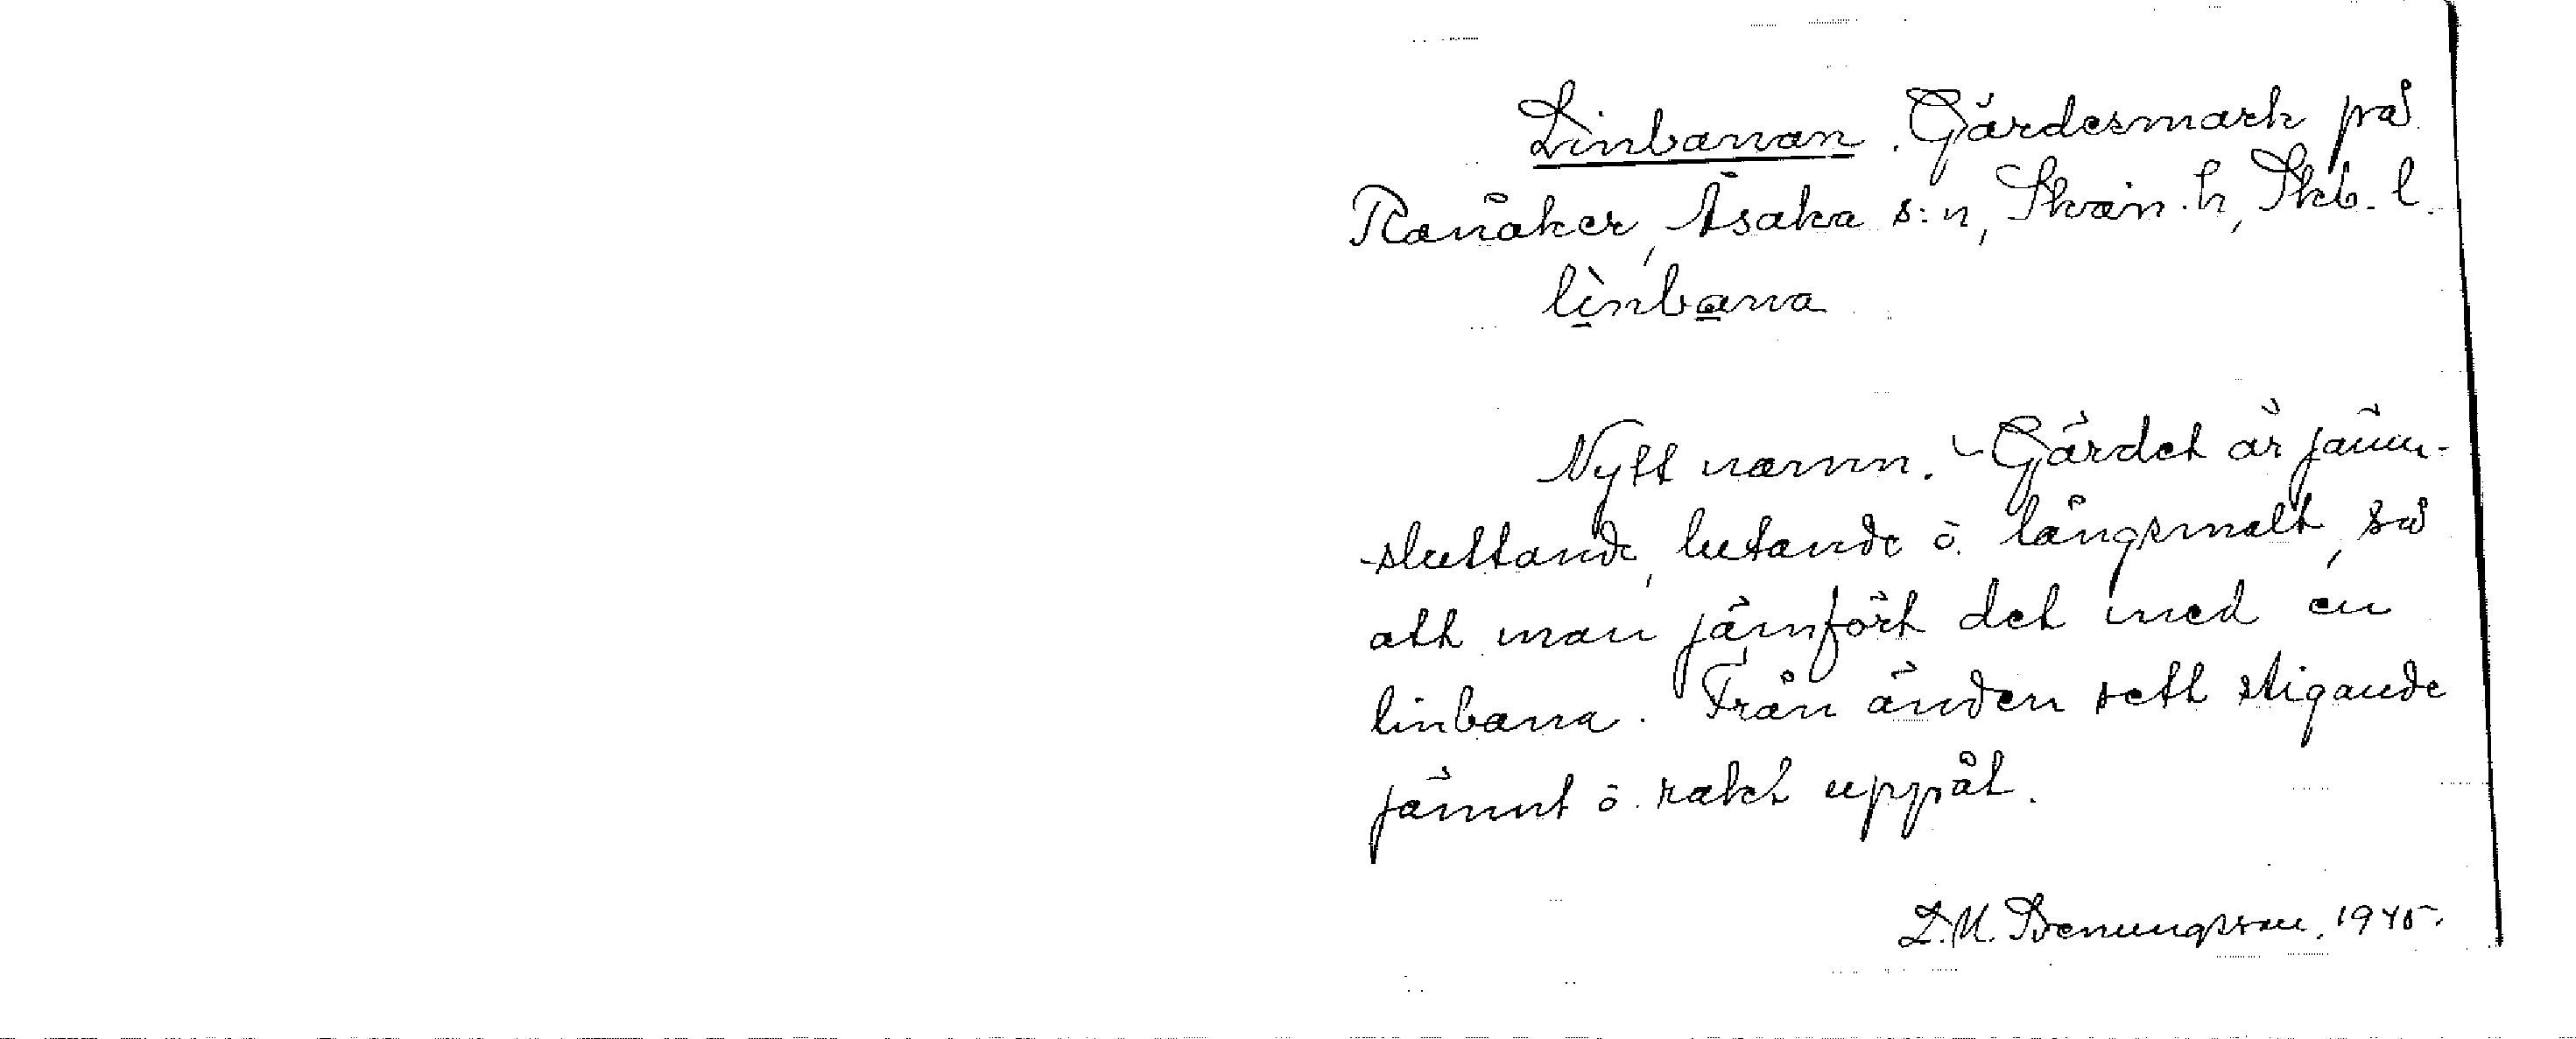 Linbanan. Gärdesmark på
Ranåker, Åsaka s:n, Skån. h, Skb. l.
lìnbana
Nytt namn. - Gärdet är jämn-
sluttande, lutande o. långsmalt, så
att man jämfört det med en
linbana. Från änden sett stigande
jämnt o. rakt uppåt.
L.M. Benungsson, 1945.